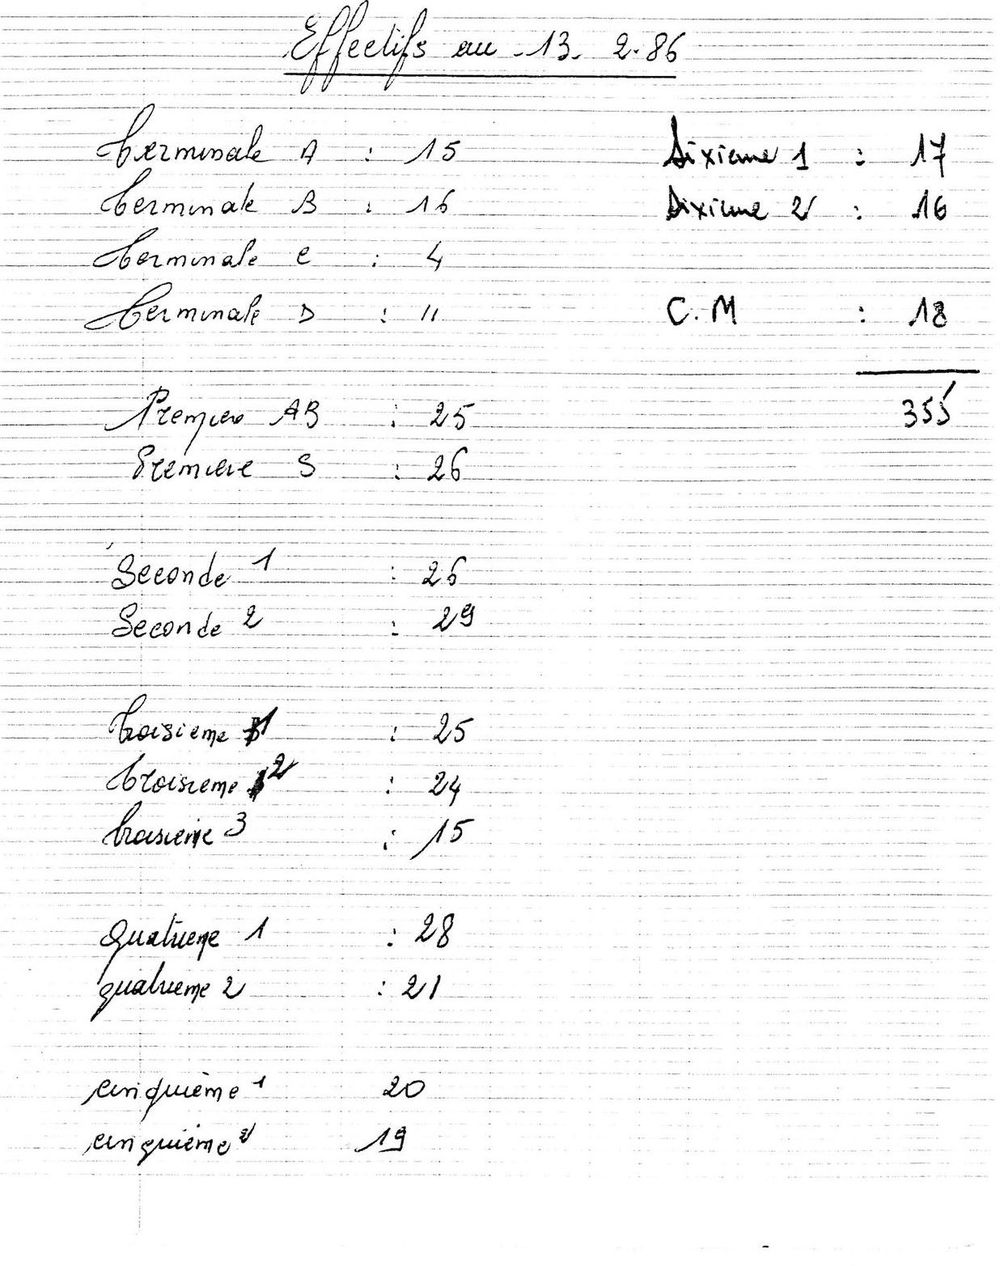 Effectifs au 13. 2.86
Terminale A : 15
Terminale B : 16
Terminale C : 4
Terminale D : 11
Premiere AB : 25
Premiere S : 26
Seconde 1 : 26
Seconde 2 : 29
troisieme 1 : 25
troisieme 2 : 24
troisieme 3 : 15
quatrieme 1 : 28
quatrieme 2 : 21
cinquième 1 20
cinquième 2 19
Sixieme 1 : 17
Sixieme 2 : 16
C.M : 18
355